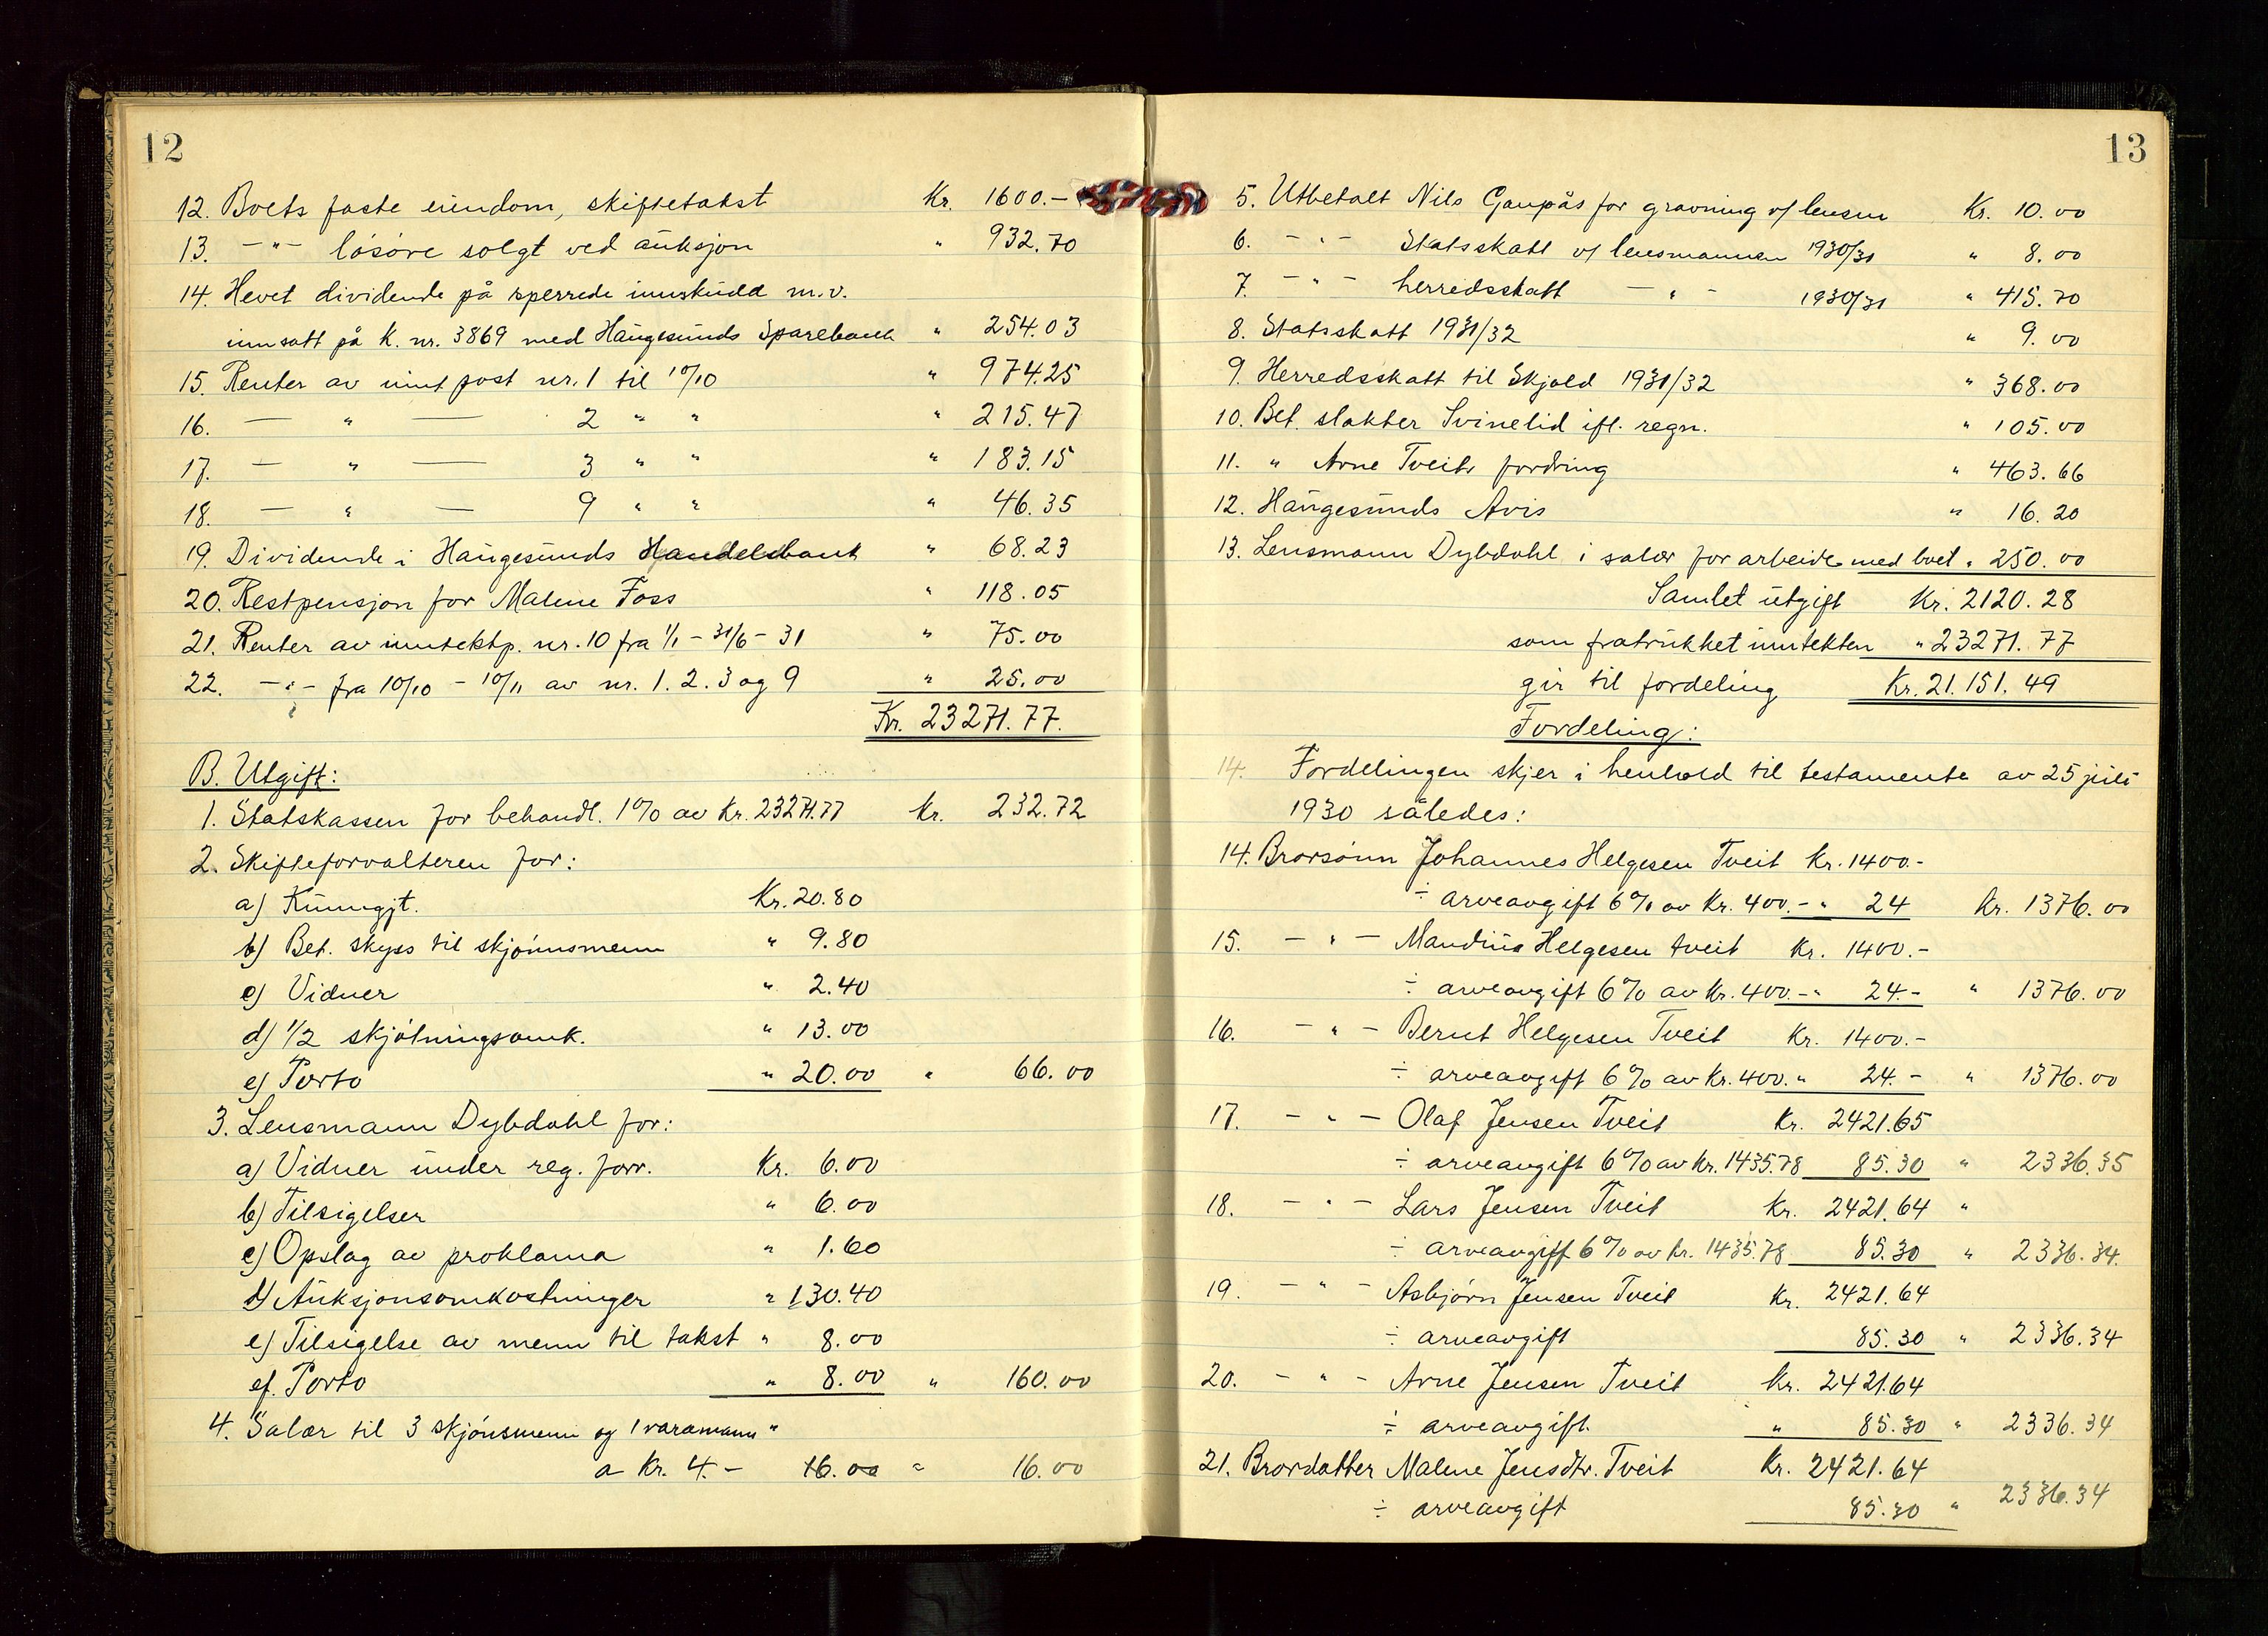 12
12. Boets faste eiendom, skiftetakst Kr. 1600.-
13. -"- lösöre solgt ved auksjon " 932.70
14. Hevet dividende på sperrede innskudd m.v.
innsatt på K. nr. 3869 med Haugesunds Sparebank " 254.03
15. Renter av innt. post nr. 1 til 10/10 " 974.25
16. — " — 2 " " " 215.47
17. — " — 3 " " " 183.15
18. — " — 9 " " " 46.35
19. Dividende i Haugesunds Handelsbank " 68.23
20. Restpensjon for Malene Foss " 118.05
21. Renter av inntektp. nr. 10 fra 1/1 - 31/6 - 31 " 75.00
22. -"- fra 10/10 - 10/11 av nr. 1. 2. 3 og 9 " 25.00
Kr. 23271.77.
B. Utgift:
1. Statskassen for behandl. 1% av Kr. 23271.77 Kr. 232.72
2. Skifteforvalteren for:
a) Kunngjt. Kr. 20.80
b) Bet. skyss til skjönnsmenn " 9.80
c) Vidner " 2.40
d) 1/2 skjötningsomk. " 13.00
e) Porto " 20.00 " 66.00
3. Lensmann Dybdahl for:
a) Vidner under reg. forr. Kr. 6.00
b) Tilsigelser " 6.00
c) Opslag av proklama " 1.60
d) Auksjonsomkostninger " 130.40
e) Tilsigelse av menn til takst " 8.00
ef. Porto " 8.00 " 160.00
4. Salær til 3 skjönsmenn og 1 varamann "
a Kr. 4.- 16.00 " 16.00
13
5. Utbetalt Nils Gaupås for gravning v/ lensm Kr. 10.00
6. -"- Statsskatt v/ lensmannen 1930/31 " 8.00
7. -"- herredsskatt -"- 1930/31 " 415.70
8. Statsskatt 1931/32 " 9.00
9. Herredsskatt til Skjold 1931/32 " 368.00
10. Bet. slakter Svinelid ifl. regn. " 105.00
11. " Arne Tveits fordring " 463.66
12. Haugesunds Avis " 16.20
13. Lensmann Dybdahl i salær for arbeide med boet " 250.00
Samlet utgift Kr. 2120.28
som fratrukket inntekten " 23271.77
gir til fordeling Kr. 21.151.49
Fordeling:
14. Fordelingen skjer i henhold til testamente av 25 juli
1930 således:
14. Brorsönn Johannes Helgesen Tveit Kr. 1400.-
÷ arveavgift 6% av Kr. 400.- " 24 Kr. 1376.00
15. -"- Mandius Helgesen tveit Kr. 1400.-
÷ arveavgift 6% av Kr. 400.- " 24.- " 1376.00
16. -"- Bernt Helgesen Tveit Kr. 1400.-
÷ arveavgift 6% av Kr. 400. " 24.- " 1376.00
17. -"- Olaf Jensen Tveit Kr. 2421.65
÷ arveavgift 6% av Kr. 1435.78 85.30 " 2336.35
18. -"- Lars Jensen Tveit Kr. 2421.64 "
÷ arveavgift 6% av Kr. 1435.78 85.30 " 2336.34.
19. -"- Asbjörn Jensen Tveit Kr. 2421.64
÷ arveavgift 85.30 " 2336.34
20. -"- Arne Jensen Tveit Kr. 2421.64
÷ arveavgift. " 85.30 " 2336.34
21. Brordatter Malene Jensdtr. Tveit Kr. 2421.64
÷ arveavgift 85.30 " 2336.34